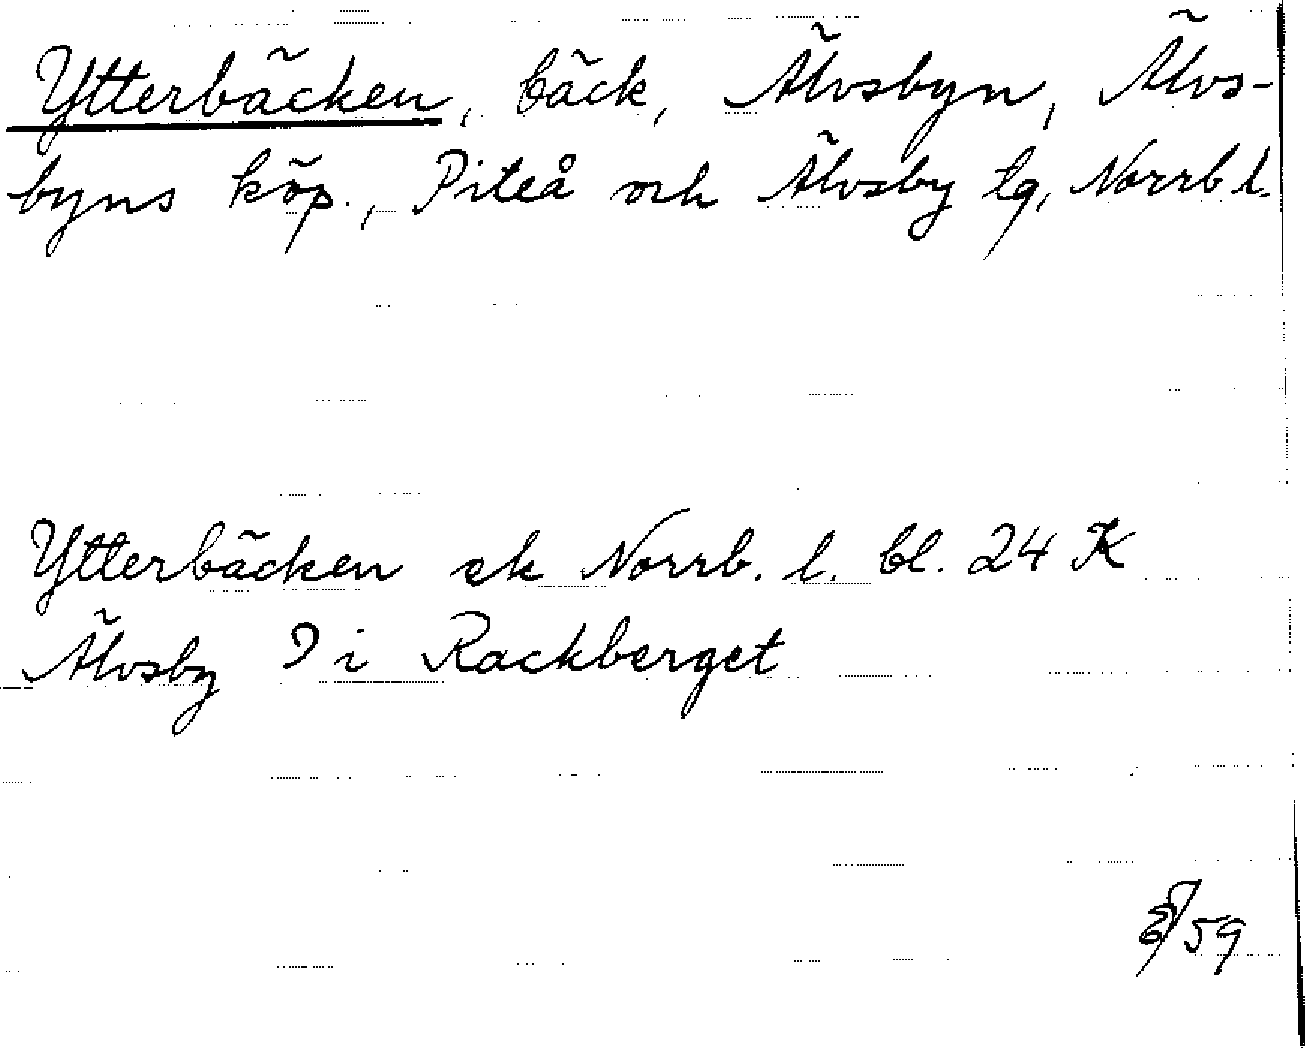 Ytterbäcken, bäck, Älvsbyn, Älvs-
byns köp., Piteå och Älvsby tg, Norrb l.
Ytterbäcken ek Norrb. l. bl. 24 K
Älvsby 9 i Rackberget
59